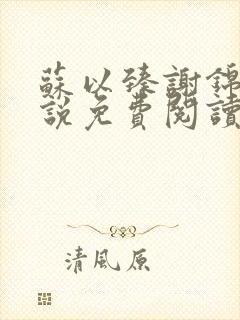 蘇以臻謝錦
說免費閱讀
清風原